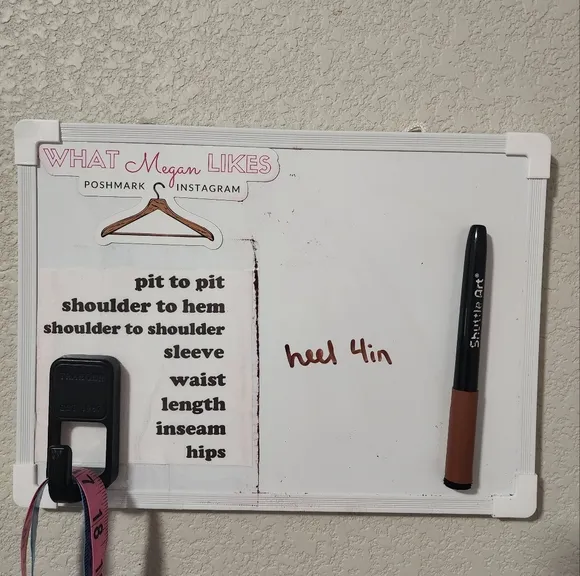 WHAT Megan LIKES
POSHMARK INSTAGRAM
pit to pit
shoulder to hem
shoulder to shoulder
sleeve
waist
length
inseam
hips
heel 4in
Shuttle Art®
18